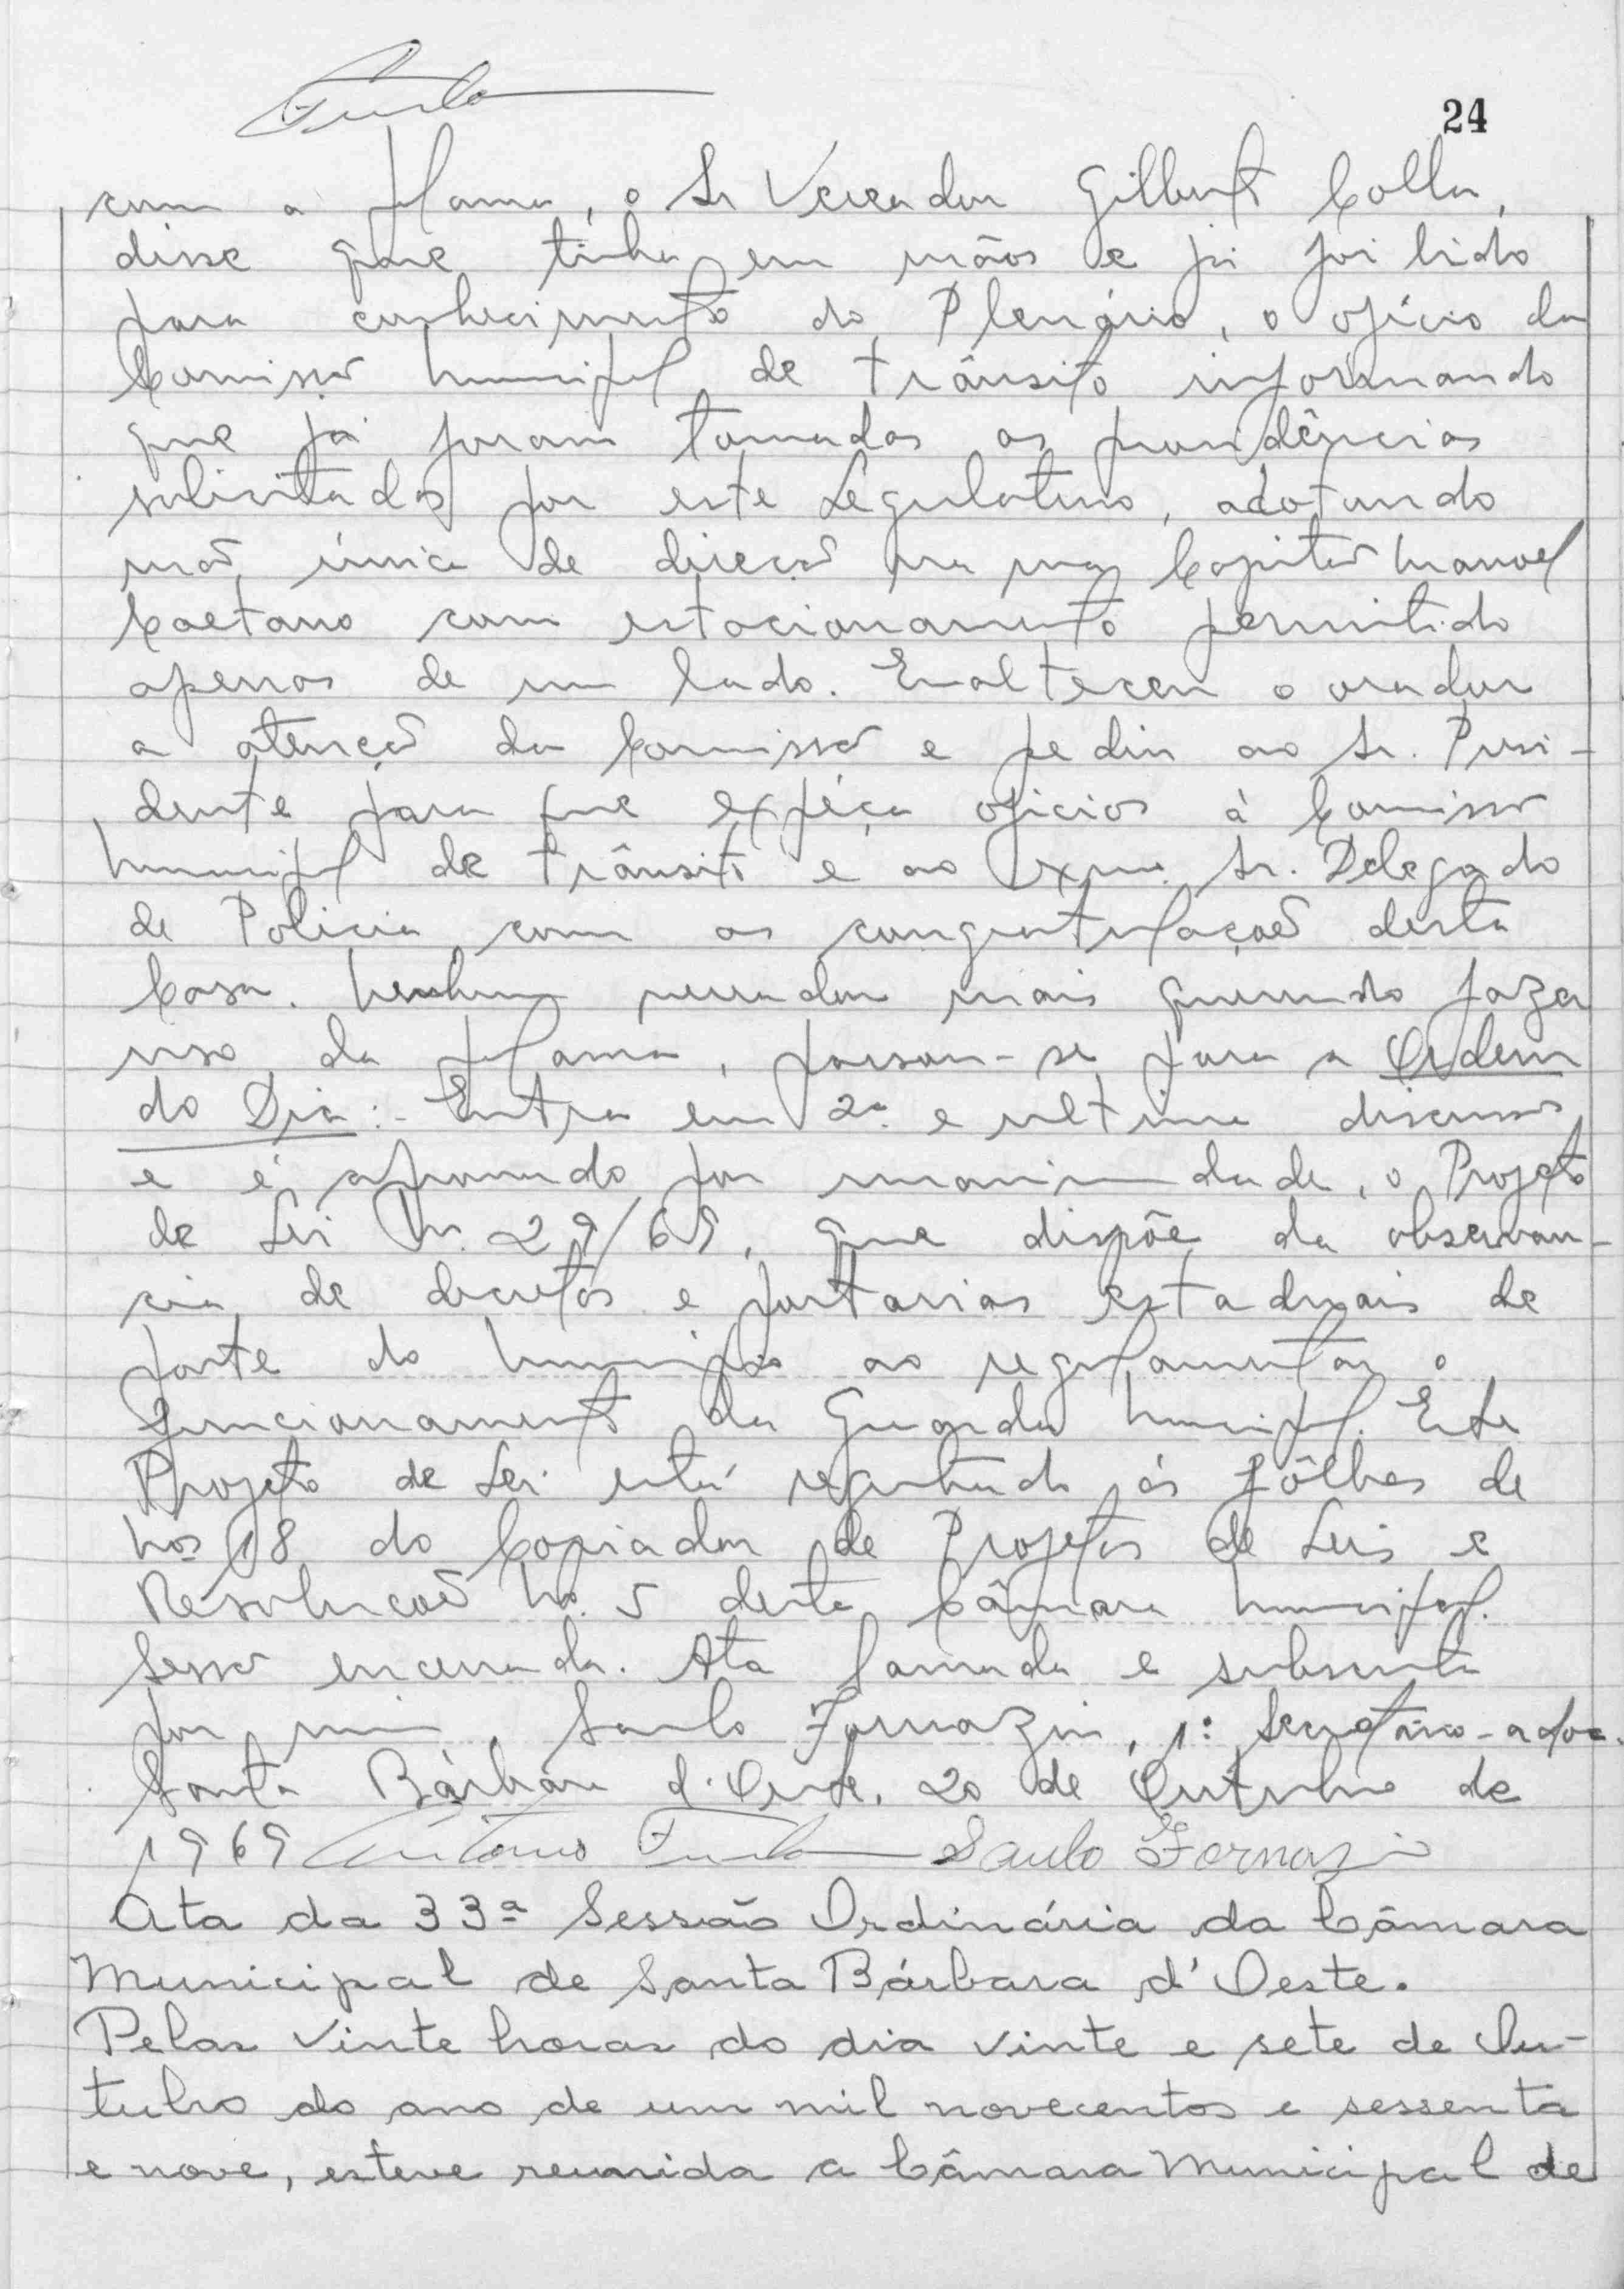 24
com a palavra, o Sr Vereador Gilberto Colla,
disse que tinha em mãos e já foi lido
para conhecimento do Plenário, o ofício da
Comissão Municipal de Trânsito informando
que já foram tomadas as providências
solicitadas por este Legislativo, adotando
mão única de direção na rua Capitão Manoel
Caetano com estacionamento permitido
apenas de um lado. Enalteceu o orador
a atenção da Comissão e pediu ao Sr. Presi-
dente para que expéça ofícios à Comissão
Municipal de Trânsito e ao Exmo. Sr. Delegado
de Policia com as congratulações desta
Casa. Nenhum vereador mais querendo fazer
uso da palavra, passou-se para a Ordem
do Dia:- Entra em 2ª e ultima discussão
e é aprovado por unanimidade, o Projeto
de Lei Nr. 29/69, que dispõe da observan-
cia de decretos e portarias estaduais de
parte do Municipio ao regulamentar o
funcionamento da Guarda Municipal. Este
Projeto de Lei está registrado ás fôlhas de
Nos 18 do Copiador de Projetos de Leis e
Resoluções No. 5 desta Câmara Municipal.
Sessão encerrada. Ata lavrada e subscrita
por mim, Saulo Fornazin, 1º Secretário-adoc.
Santa Bárbara d'Oeste, 20 de Outubro de
1969 Antonio Saulo Fornazin
Ata da 33ª Sessão Ordinária da Câmara
Municipal de Santa Bárbara d'Oeste.
Pelas vinte horas do dia vinte e sete de Ou-
tubro do ano de um mil novecentos e sessenta
e nove, esteve reunida a Câmara Municipal de